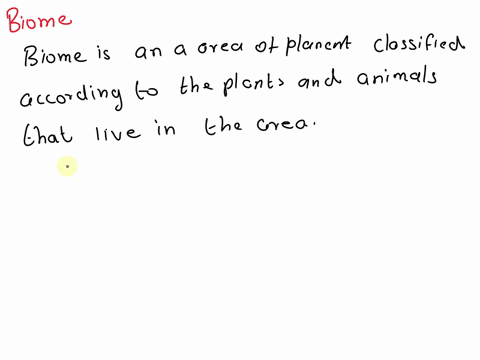 Biome
Biome is an a area of planent classified
according to the plants and animals
that live in the area.